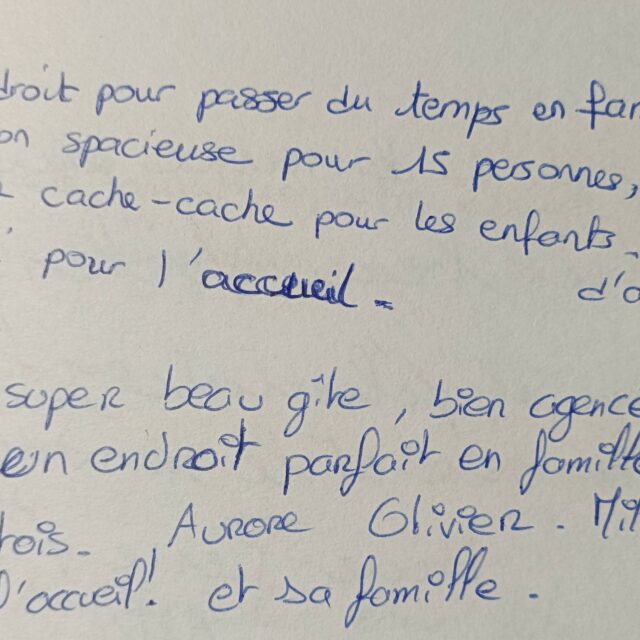 droit pour passer du temps en fam
on spacieuse pour 15 personnes,
cache-cache pour les enfants.
pour l'accueil.
d'a
super beau gîte, bien agencé
un endroit parfait en famille
fois. Aurore Olivier. Mit
D'accueil! et sa famille.